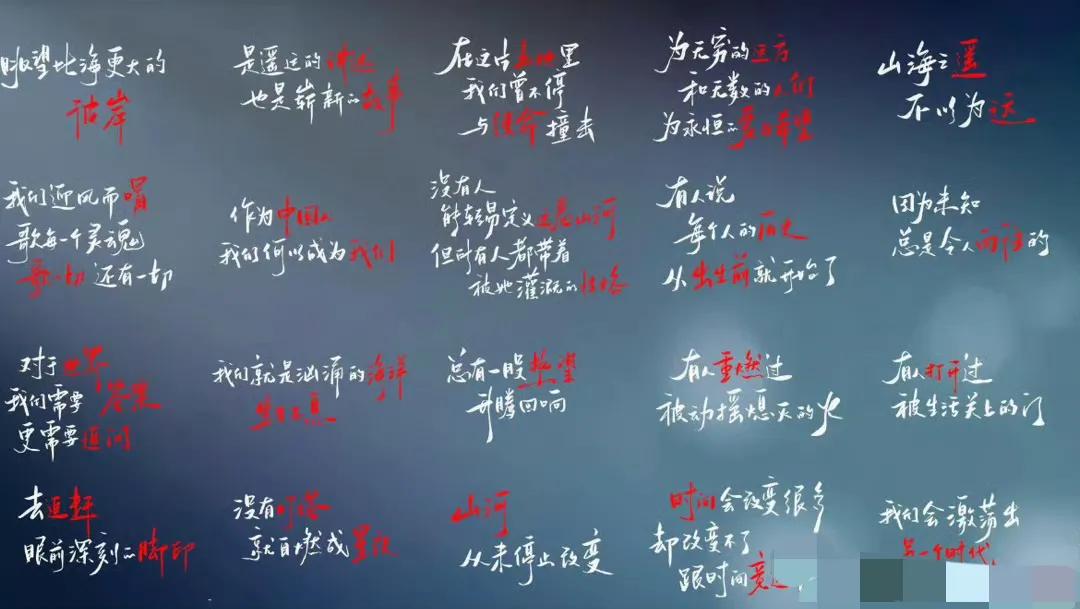 眺望比海更大的
彼岸
是遥远的讲述
也是崭新的故事
在这片基地里
我们曾不停
与使命撞击
为无穷的远方
和无数的人们
为永恒的爱与希望
山海之遥
不以为远
我们迎风而唱
歌每一个灵魂
歌一切还有一切
作为中国人
我们何以成为我们
没有人
能轻易定义这急山河
但所有人都带着
被她灌溉的性格
有人说
每个人的历史
从出生前就开始了
因为未知
总是令人向往的
对于世界
我们需要答案
更需要追问
我们就是汹涌的海洋
生生不息
总有一股热望
升腾回响
有人重燃过
被动摇熄灭的火
有人打开过
被生活关上的门
去追赶
眼前深刻的脚印
没有灯塔
就自燃成星辰
山河
从未停止改变
时间会改变很多
却改变不了
跟时间竞
我们会激荡出
另一个时代